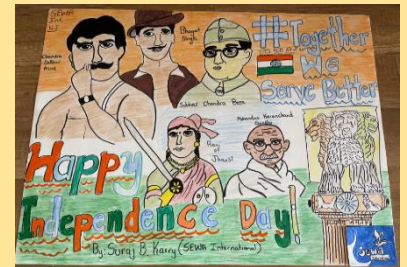 SEWA
Int
NJ
Chandra
Sekhar
Azad
Bhagat
Singh
Subhas Chandra Bose
#Together
We
Serve Better
Mohandas Karamchand
Gandhi
Rani
of
Jhansi
Happy
Independence Day!
By: Suraj B Karry (SEWA International)
Sewa